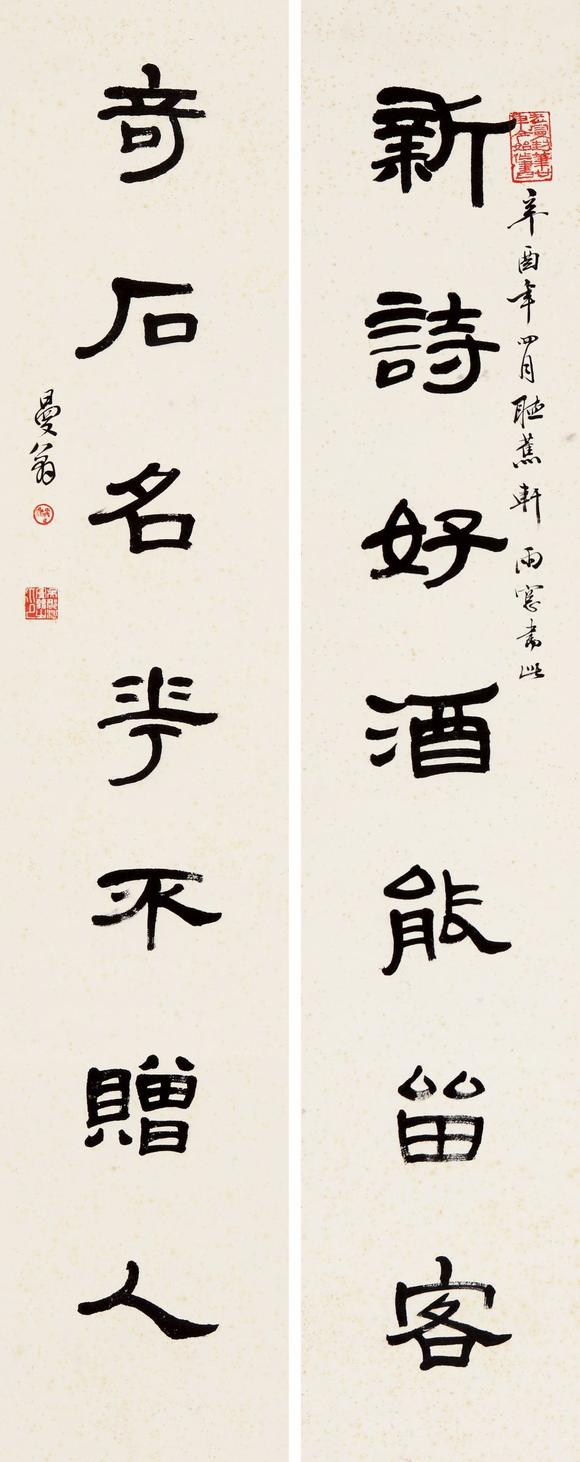 新詩好酒能畱客
辛酉年四月聴蕉軒雨窓書此
奇石名華不贈人
曼翁